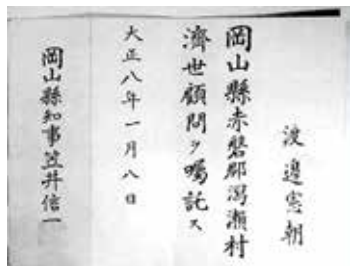 渡邊憲朝
岡山縣赤磐郡潟瀬村
濟世顧問ヲ囑託ス
大正八年一月八日
岡山縣知事笠井信一